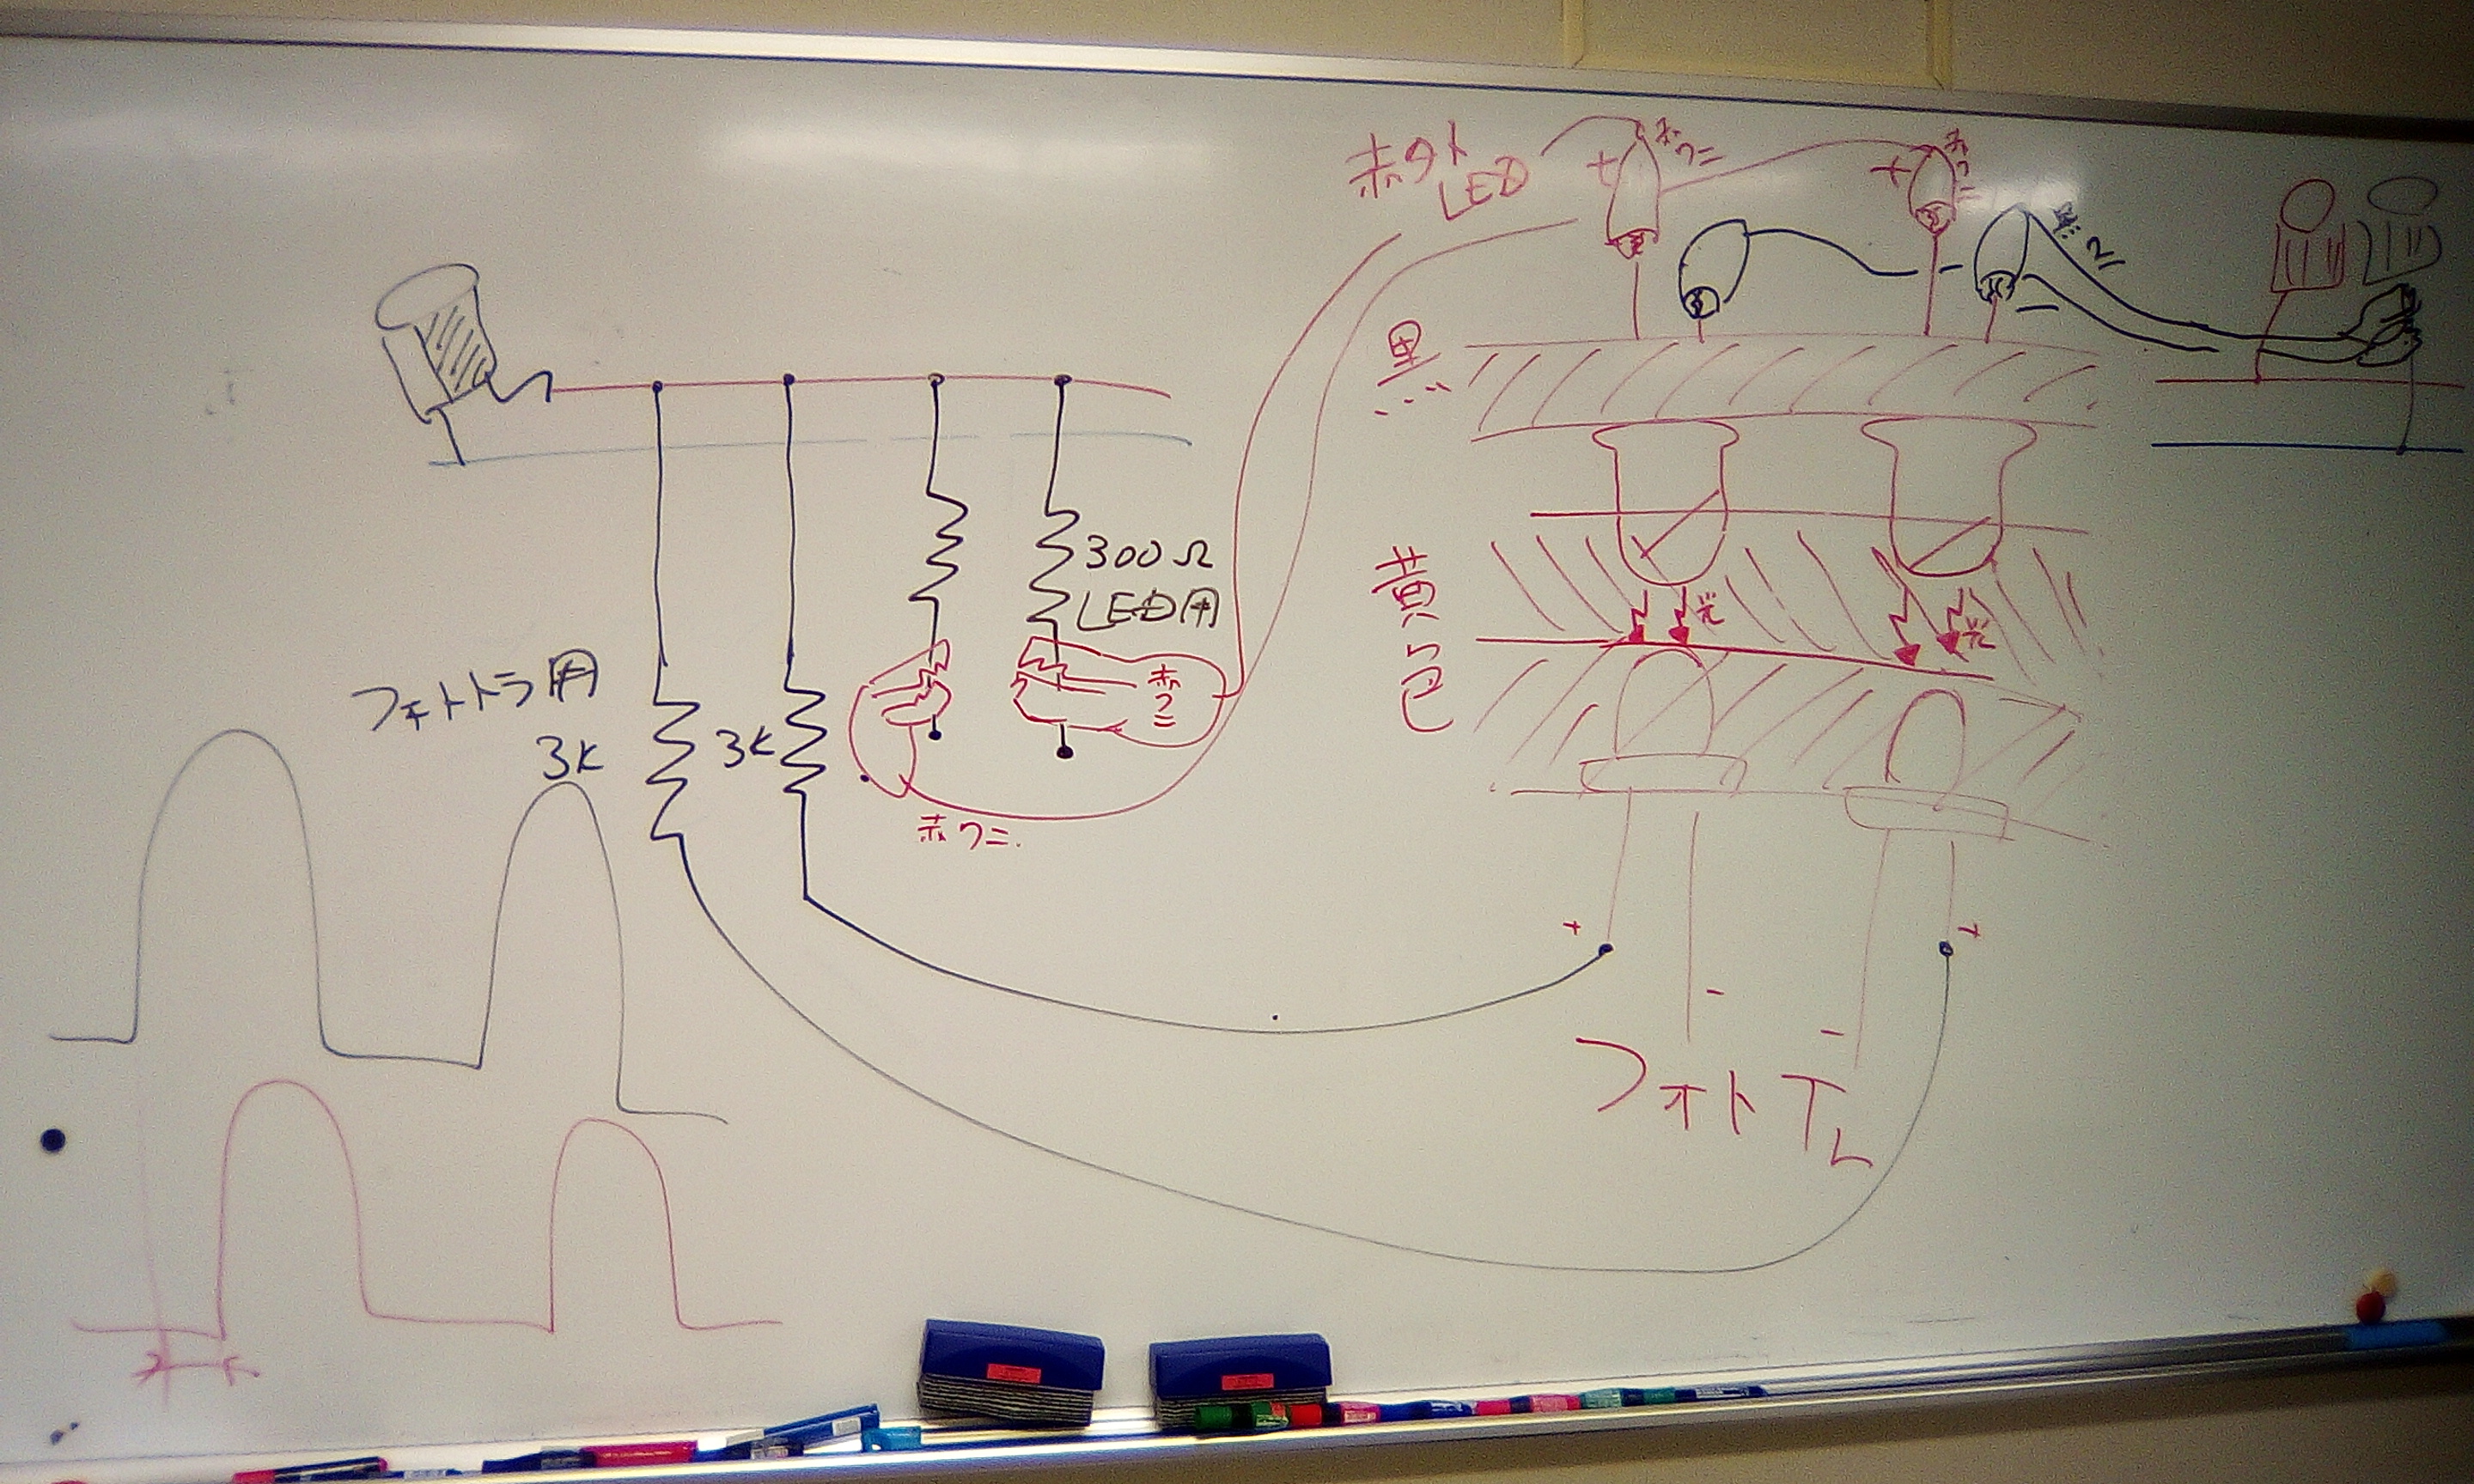 赤外
LED
+
赤ワニ
+
赤ワニ
黒ワニ
-
黒
300Ω
LED用
フォトトラ用
3K
3K
赤ワニ
赤ワニ
黄色
光
光
+
-
-
+
フォトTr